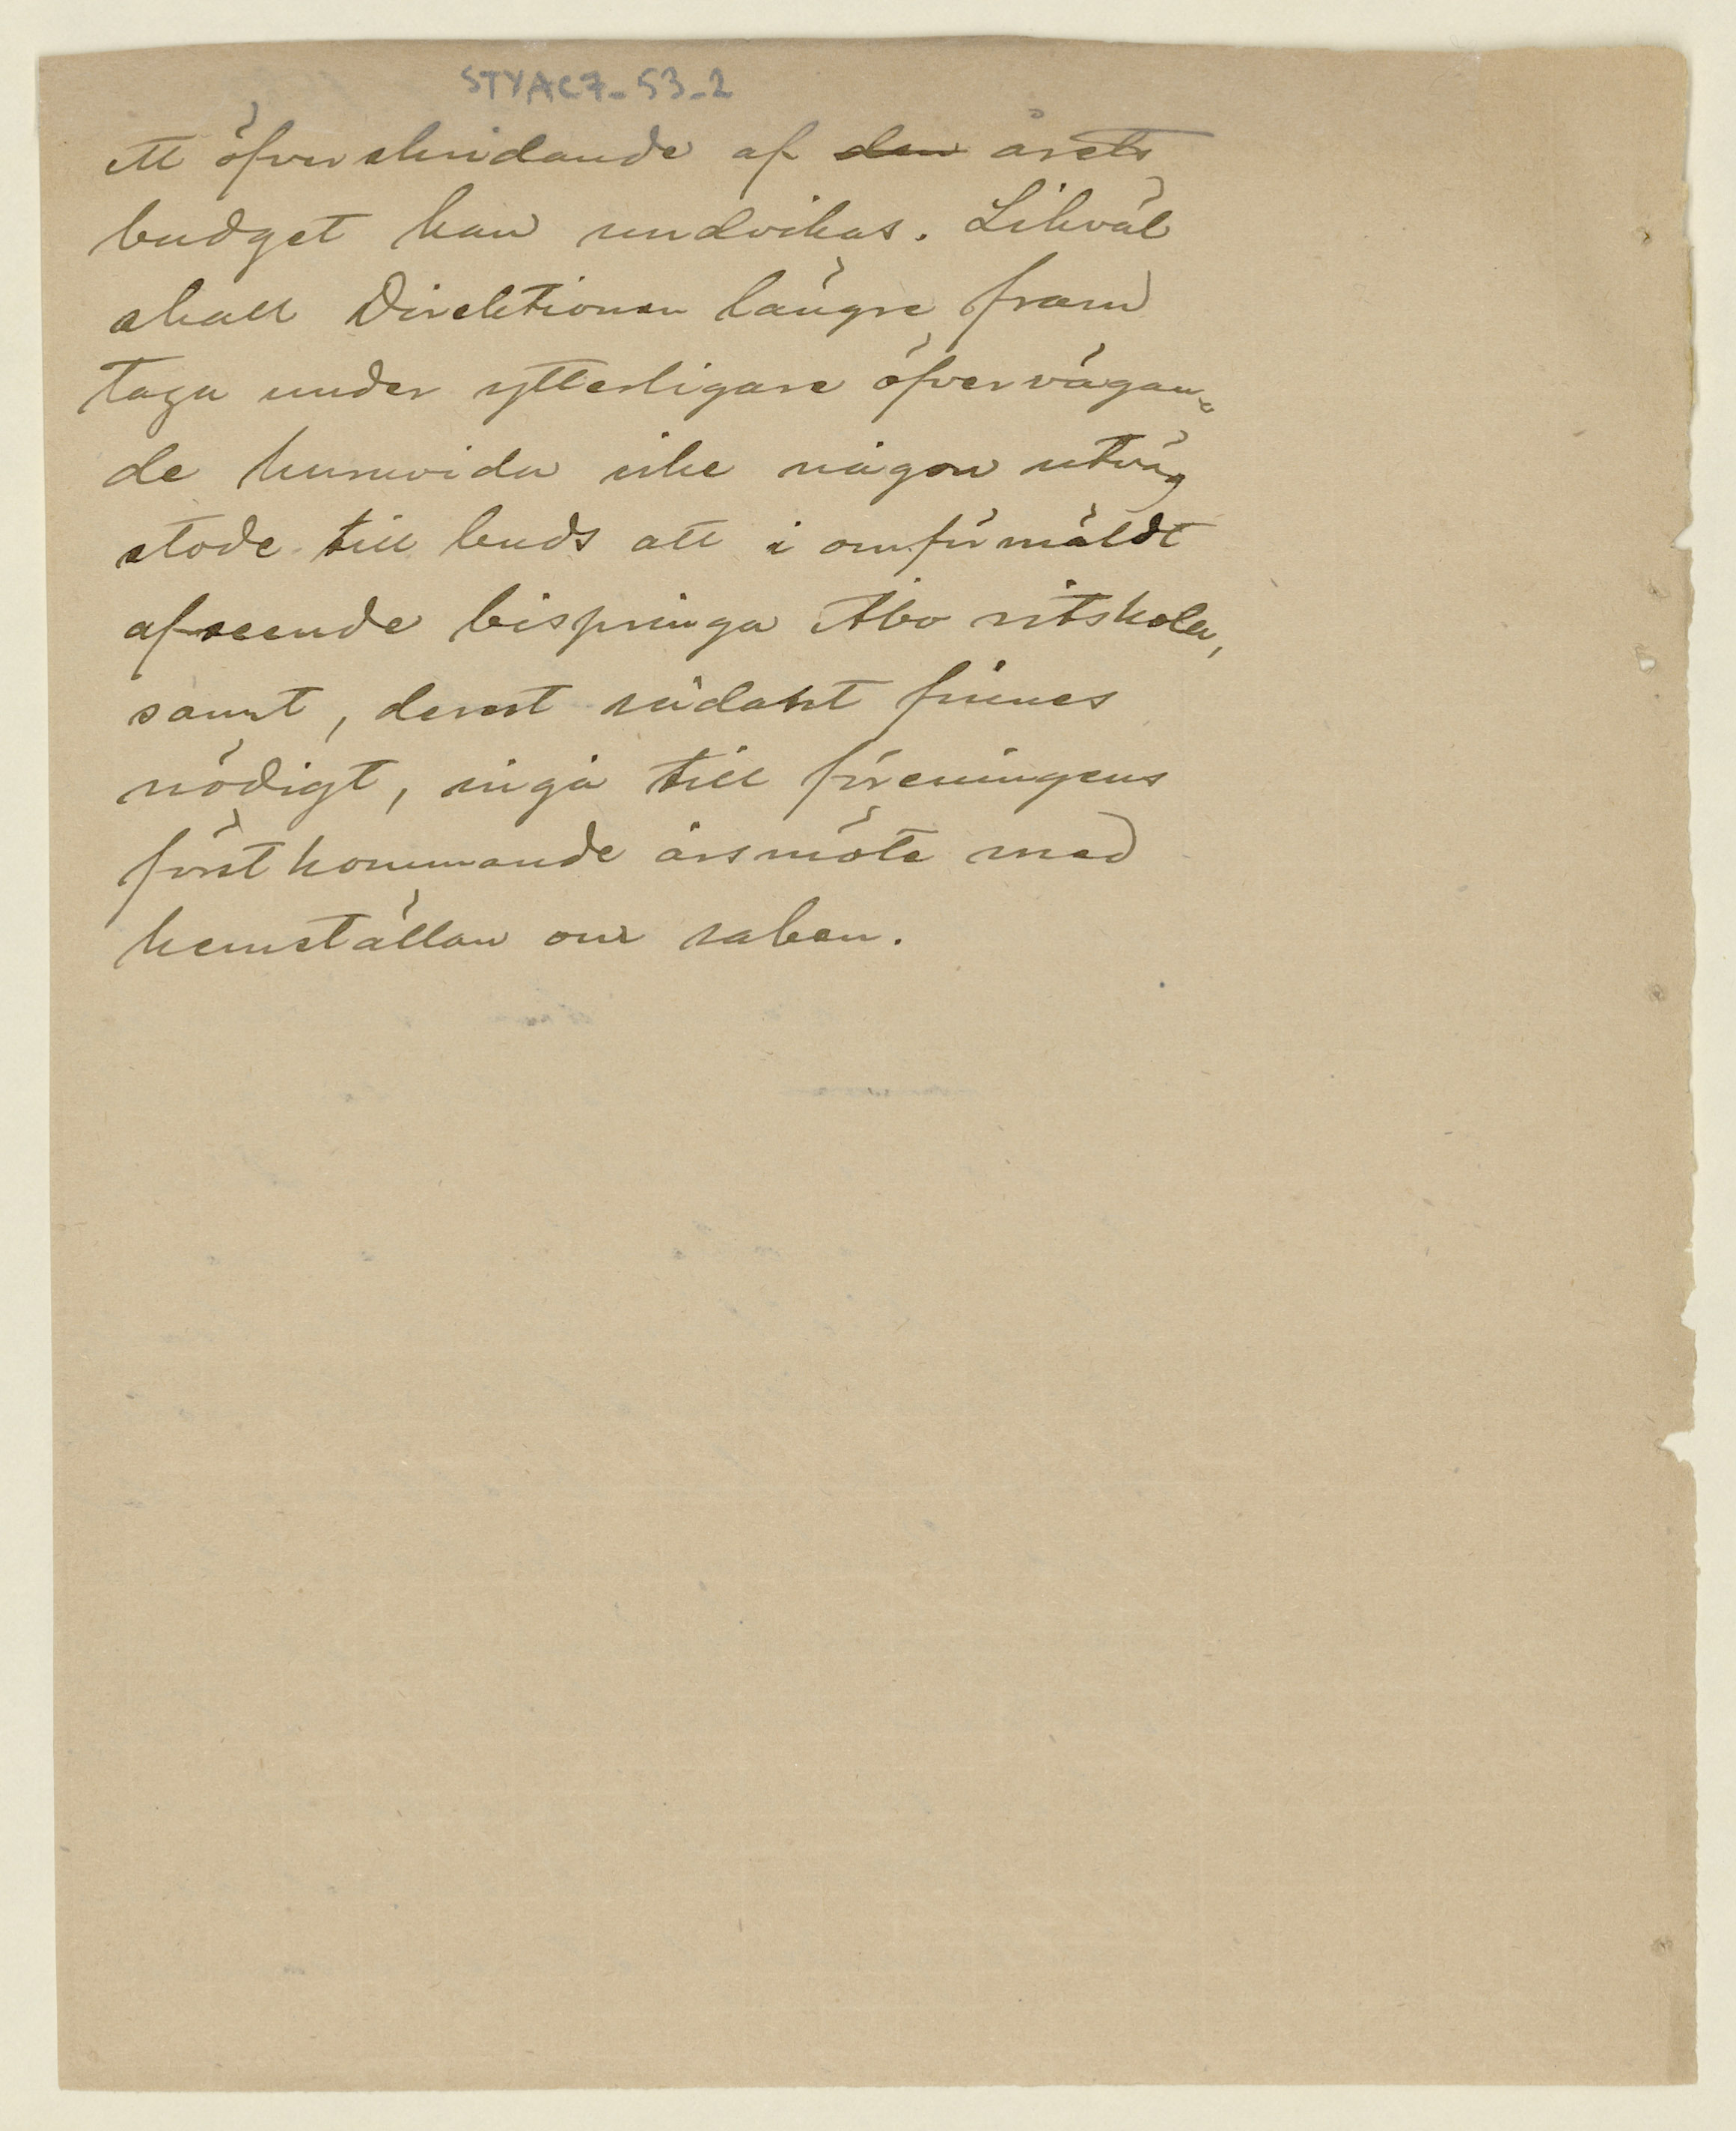 STYAC7-53-2
ett öfverskridande af den årets
budget kan undvikas. Likväl
skall Direktionen längre fram
taga under ytterligare öfvervägan-
de huruvida icke någon utväg
stode till buds att i omförmäldt
afseende bispringa Åbo ritskola,
samt, derest sådant finnes
nödigt, ingå till föreningens
först kommande årsmöte med
hemställan om saken.